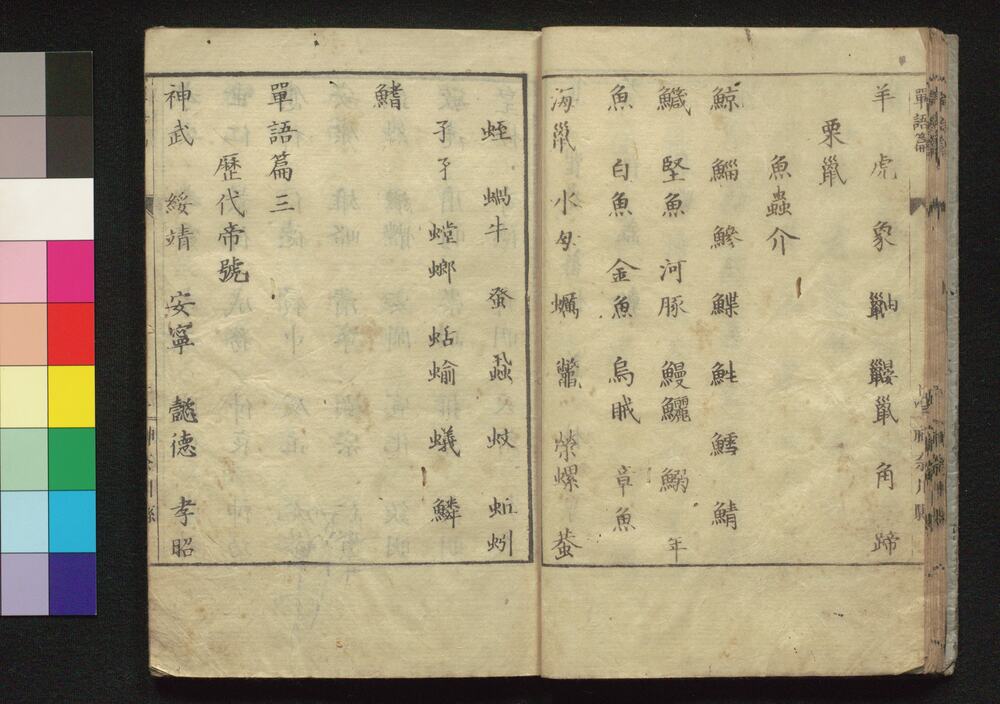 單語篇
羊 虎 象 鼬 鼴鼠 角 蹄
栗鼠
魚蟲介
鯨 鯔 鰺 鰈 鮏 鱈 鯖
鱵 堅魚 河豚 鰻鱺 鰯 年
魚 白魚 金魚 烏賊 章魚
海鼠 水母 蠣 鼈 榮螺 蚕
蛭 蝸牛 蚤 蝨 蚊 蚯蚓
孑孑 螳螂 蛞蝓 蟻 鱗
鰭
單語篇三
歷代帝號
神武 綏靖 安寧 懿德 孝昭